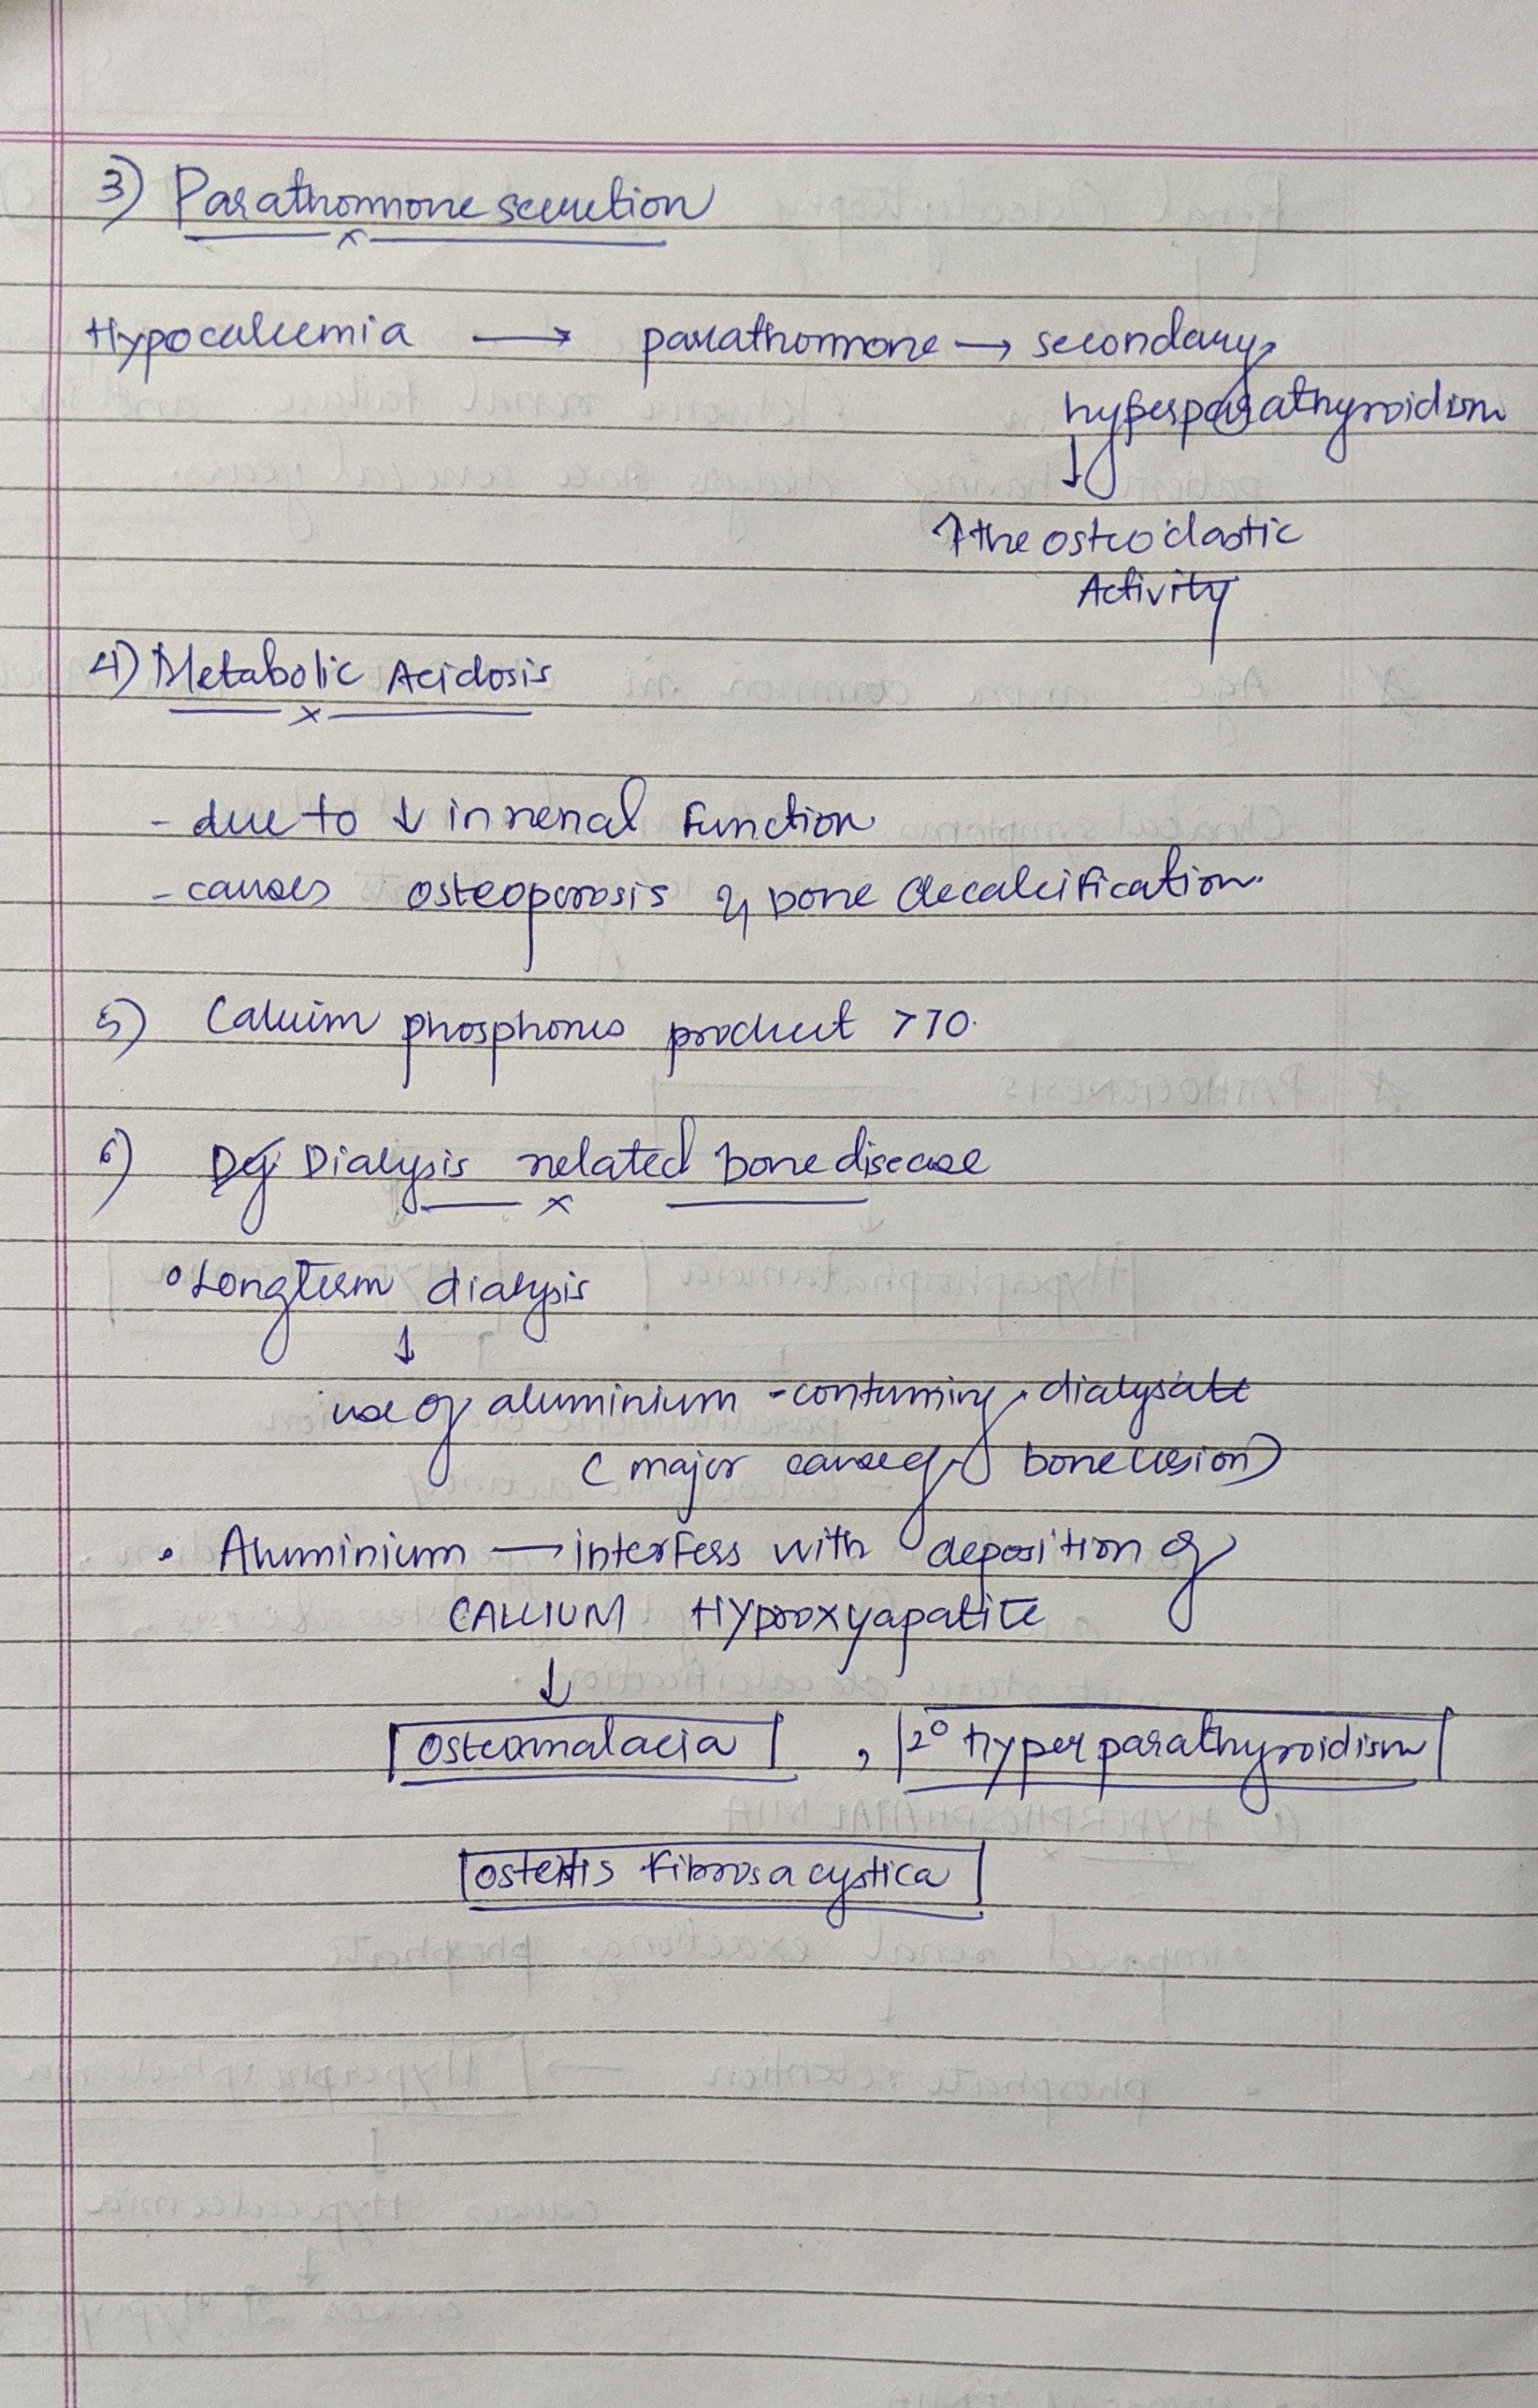 3) Parathormone secretion
Hypocalcemia → parathormone → secondary
hyperparathyroidism
↓
↑ the osteoclastic
Activity
4) Metabolic Acidosis
- due to ↓ in renal function
- causes osteoporosis & bone decalcification.
5) Calcium phosphorus product >70.
6) Dialysis related bone disease
• Longterm dialysis
↓
use of aluminium - containing dialysate
(major cause of bone lesion)
• Aluminium — interfess with deposition of
CALCIUM Hyproxyapatite
↓
Osteomalacia , 2° hyperparathyroidism
osteitis fibrosa cystica